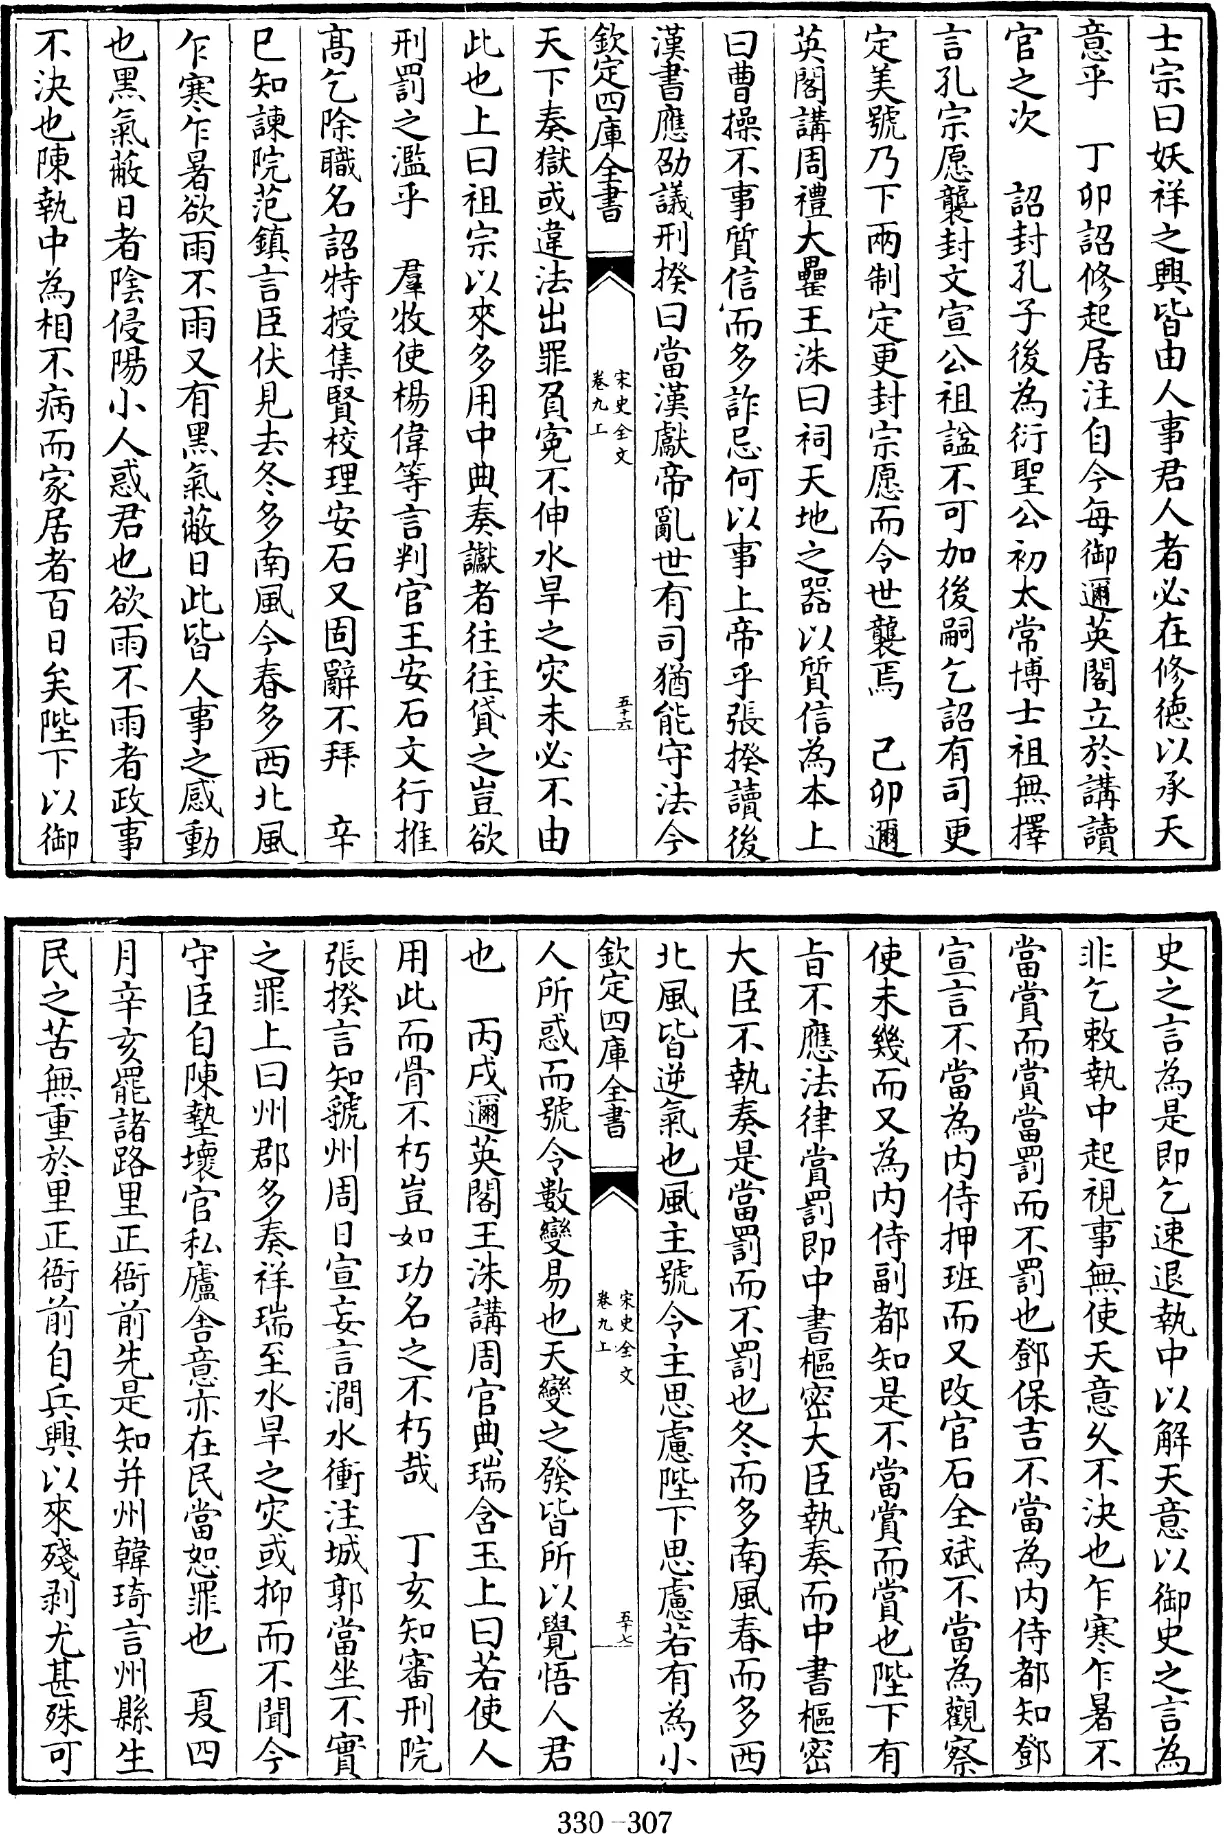 士宗曰妖祥之興皆由人事君人者必在修德以承天
意乎　丁卯詔修起居注自今每御邇英閣立於講讀
官之次　詔封孔子後為衍聖公初太常博士祖無擇
言孔宗愿襲封文宣公祖諡不可加後嗣乞詔有司更
定美號乃下兩制定更封宗愿而令世襲焉　己卯邇
英閣講周禮大罍王洙曰祠天地之器以質信為本上
曰曹操不事質信而多詐忌何以事上帝乎張揆讀後
漢書應劭議刑揆曰當漢獻帝亂世有司猶能守法今
欽定四庫全書　宋史全文　卷九上　五十六
天下奏獄或違法出罪負寃不伸水旱之灾未必不由
此也上曰祖宗以來多用中典奏讞者往往貸之豈欲
刑罰之濫乎　羣牧使楊偉等言判官王安石文行推
高乞除職名詔特授集賢校理安石又固辭不拜　辛
巳知諫院范鎮言臣伏見去冬多南風今春多西北風
乍寒乍暑欲雨不雨又有黑氣蔽日此皆人事之感動
也黑氣蔽日者陰侵陽小人惑君也欲雨不雨者政事
不決也陳執中為相不病而家居者百日矣陛下以御
史之言為是即乞速退執中以解天意以御史之言為
非乞敕執中起視事無使天意久不決也乍寒乍暑不
當賞而賞當罰而不罰也鄧保吉不當為内侍都知鄧
宣言不當為内侍押班而又改官石全斌不當為觀察
使未幾而又為内侍副都知是不當賞而賞也陛下有
旨不應法律賞罰即中書樞密大臣執奏而中書樞密
大臣不執奏是當罰而不罰也冬而多南風春而多西
北風皆逆氣也風主號令主思慮陛下思慮若有為小
欽定四庫全書　宋史全文　卷九上　五十七
人所惑而號令數變易也天變之發皆所以覺悟人君
也　丙戌邇英閣王洙講周官典瑞含玉上曰若使人
用此而骨不朽豈如功名之不朽哉　丁亥知審刑院
張揆言知虢州周日宣妄言澗水衝注城郭當坐不實
之罪上曰州郡多奏祥瑞至水旱之灾或抑而不聞今
守臣自陳墊壞官私廬舍意亦在民當恕罪也　夏四
月辛亥罷諸路里正衙前先是知并州韓琦言州縣生
民之苦無重於里正衙前自兵興以來殘剥尤甚殊可
330-307